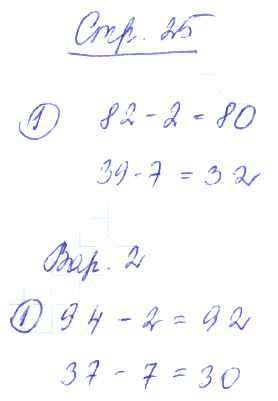 Стр. 25
① 82 - 2 = 80
39 - 7 = 32
Вар. 2
① 94 - 2 = 92
37 - 7 = 30